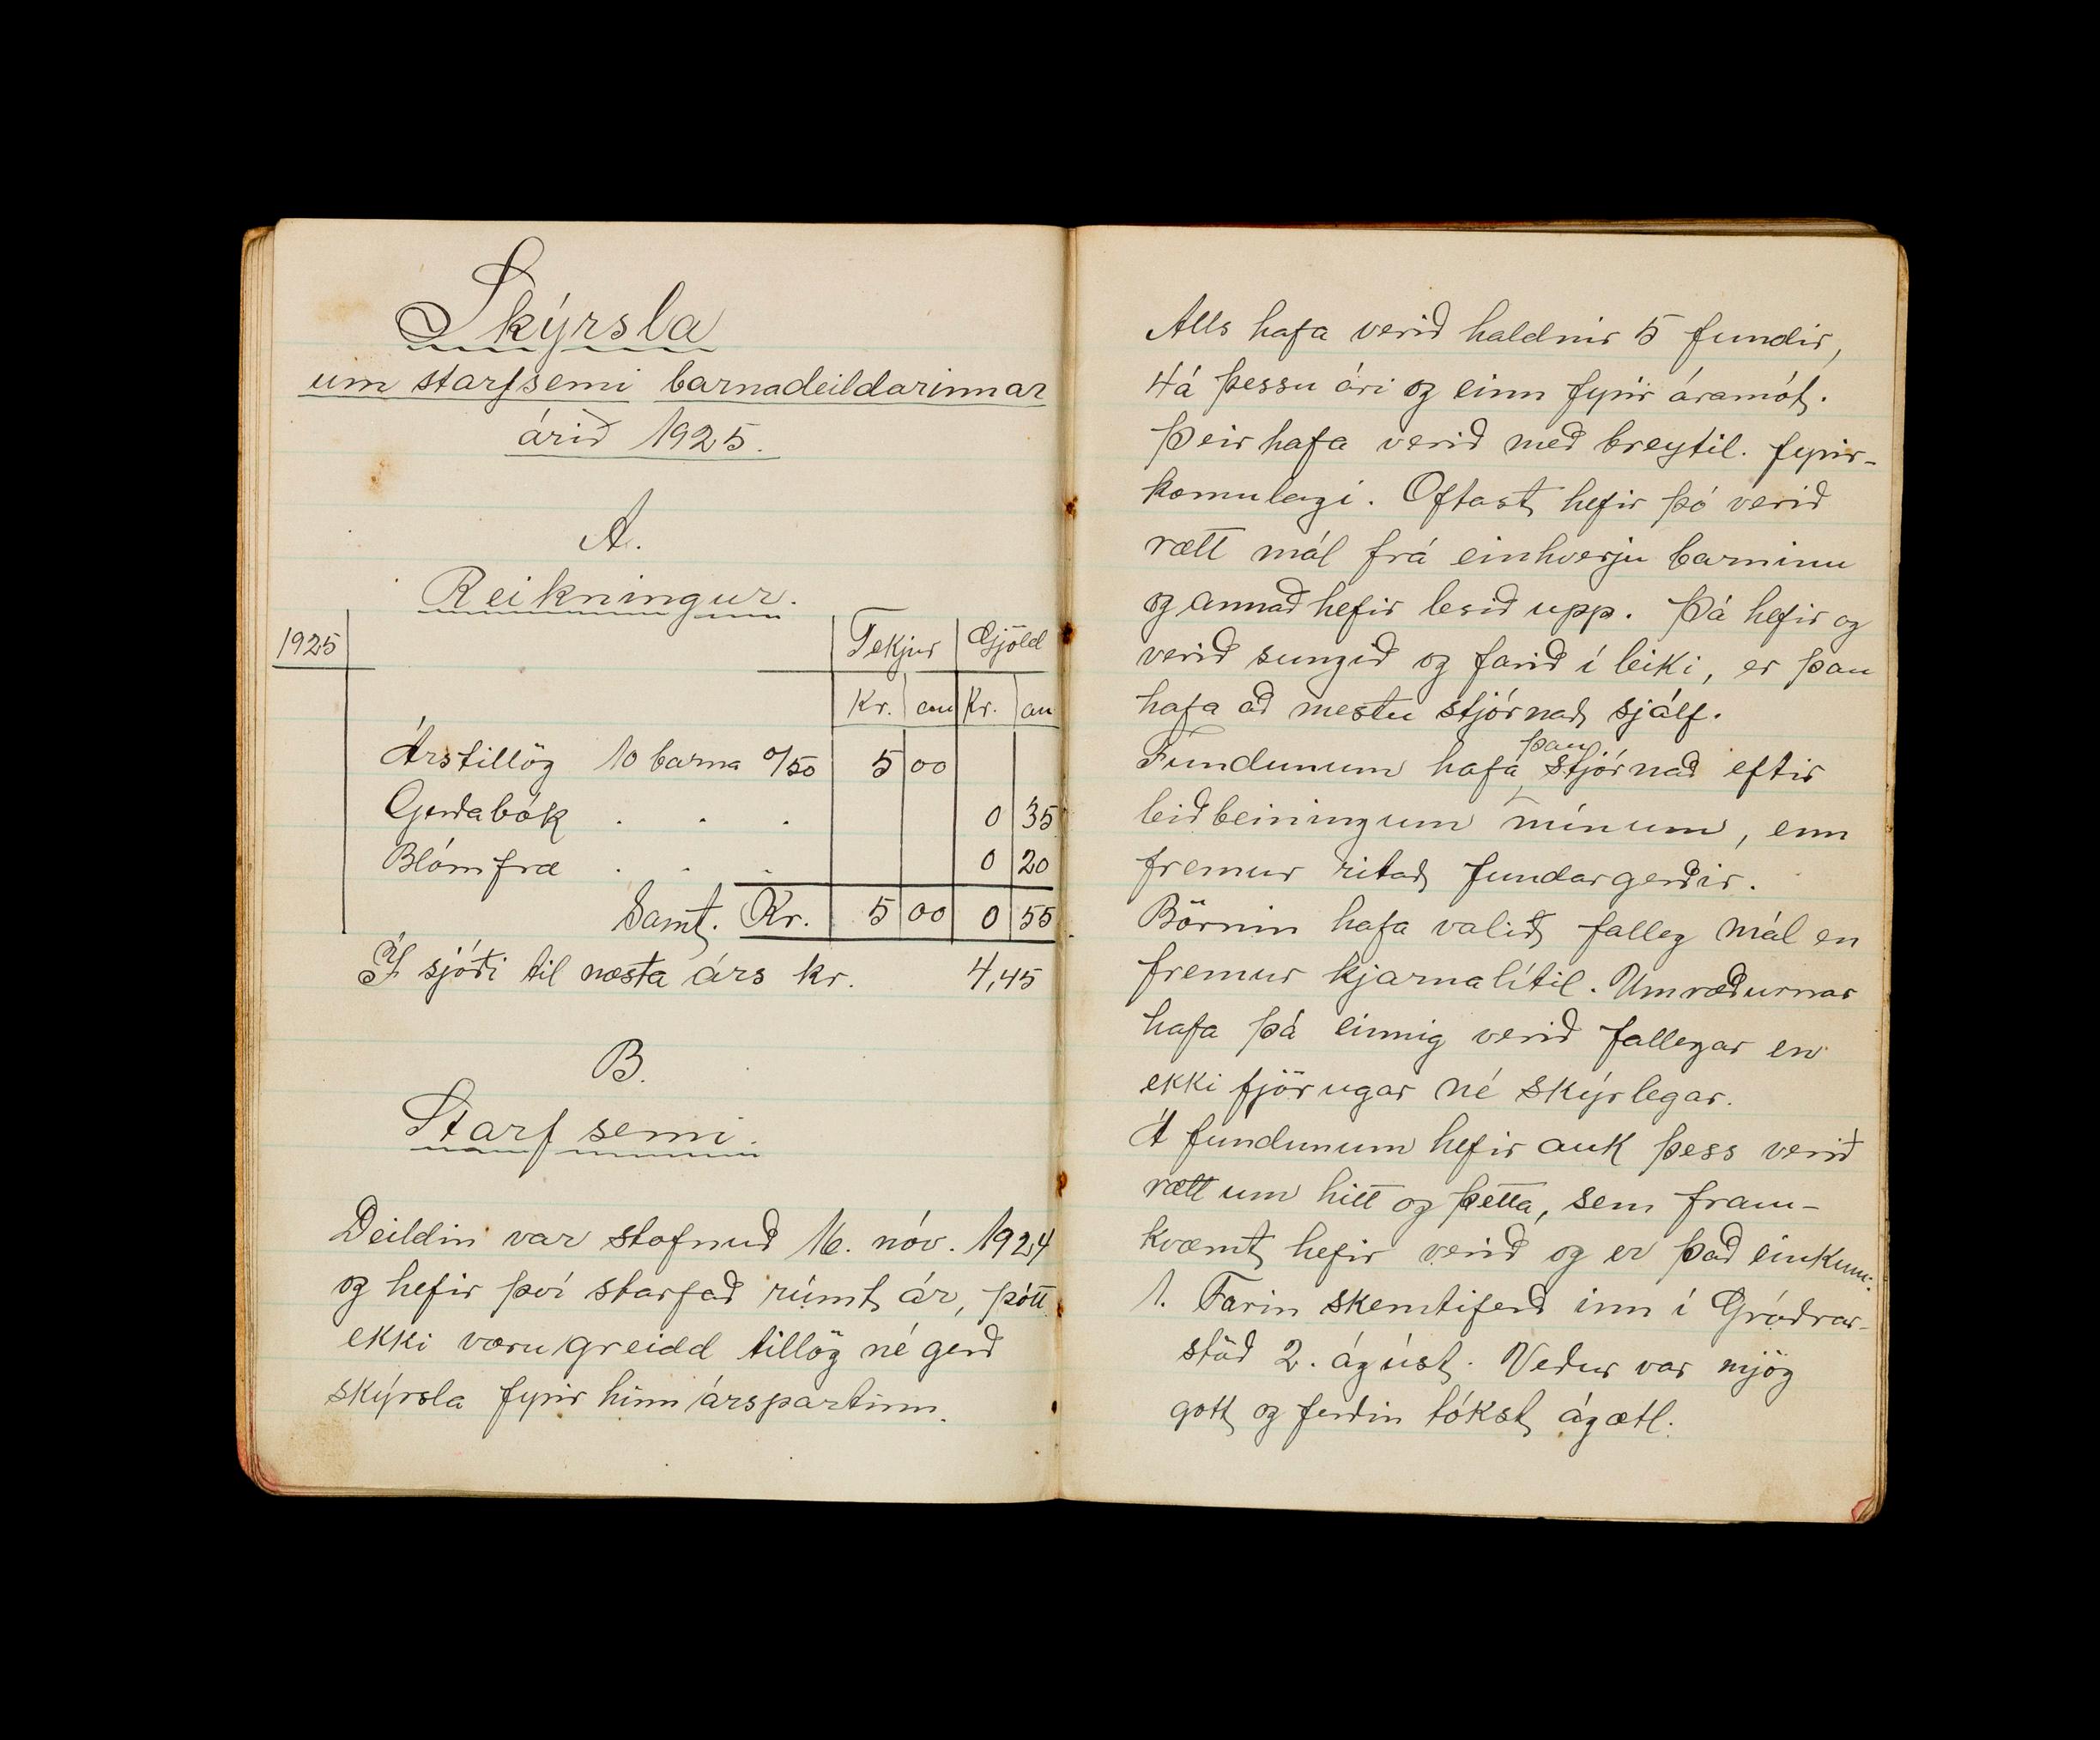 Skýrsla
um starfsemi barnadeildarinnar
árið 1925.
A.
Reikningur.
1925 Tekjur Gjöld
Kr. au Kr. au
Árstillög 10 barna 0/50 5 00
Gerðabók . . . 0 35
Blómfræ . . . 0 20
Samt. Kr. 5 00 0 55
Í sjóði til næsta árs kr. 4,45
B.
Starfsemi.
Deildin var stofnuð 16. nóv. 1924
og hefir því starfað rúmt ár, þótt
ekki væru greidd tillög né gerð
skýrsla fyrir hinn árspartinn.
Alls hafa verið haldnir 5 fundir,
4 á þessu ári og einn fyrir áramót.
Þeir hafa verið með breytil. fyrir-
komulagi. Oftast hefir þó verið
rætt mál frá einhverju barninu
og annað hefir lesið upp. Þá hefir og
verið sungið og farið í leiki, er þau
hafa að mestu stjórnað sjálf.
Fundunum hafa þau stjórnað eftir
leiðbeiningum mínum, enn
fremur ritað fundargerðir.
Börnin hafa valið falleg mál en
fremur kjarnalítil. Umræðurnar
hafa þá einnig verið fallegar en
ekki fjörugar né skýrlegar.
Á fundunum hefir auk þess verið
rætt um hitt og þetta, sem fram-
kvæmt hefir verið og er það einkum:
1. Farin skemtiferð inn í Gróðrar-
stöð 2. ágúst. Veður var mjög
gott og ferðin tókst ágætl.